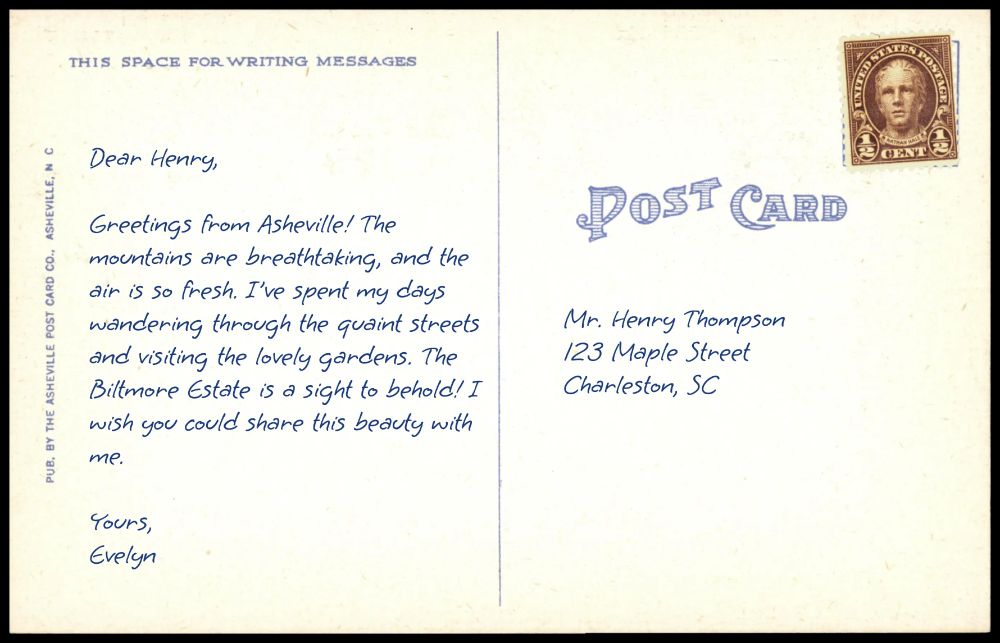 THIS SPACE FOR WRITING MESSAGES
PUB. BY THE ASHEVILLE POST CARD CO., ASHEVILLE, N C
Dear Henry,
Greetings from Asheville! The
mountains are breathtaking, and the
air is so fresh. I've spent my days
wandering through the quaint streets
and visiting the lovely gardens. The
Biltmore Estate is a sight to behold! I
wish you could share this beauty with
me.
Yours,
Evelyn
UNITED STATES POSTAGE
NATHAN HALE
1/2 CENT 1/2
POST CARD
Mr. Henry Thompson
123 Maple Street
Charleston, SC